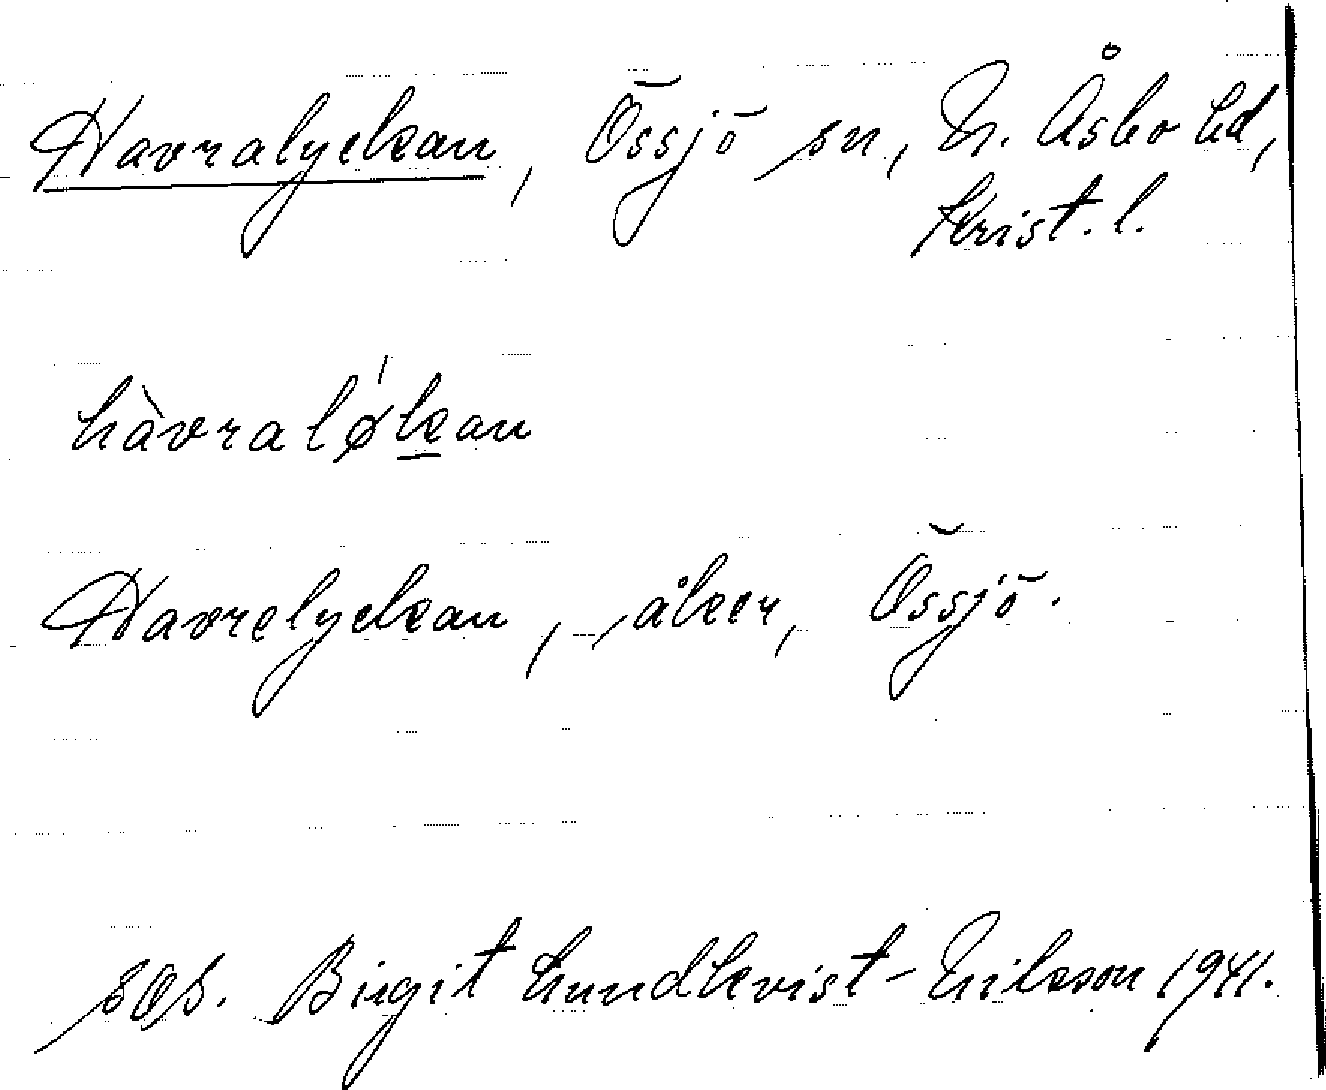 Havralyckan, Össjö sn, N. Åsbo hd,
Krist. l.
hàvralø̀kan
Havrelyckan, åker, Össjö.
sos. Birgit Lundkvist-Nilsson 1941.